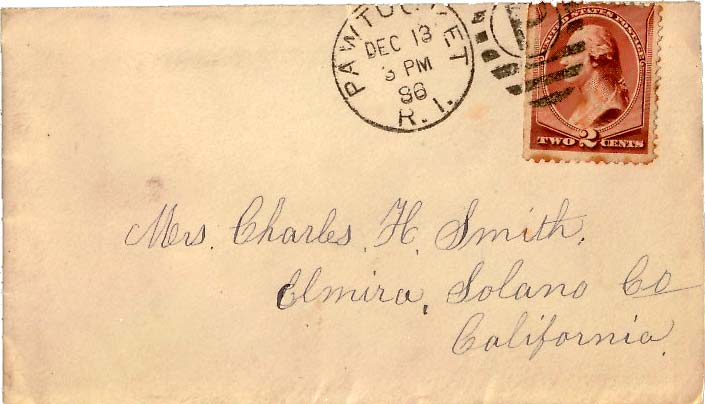 PAWTUCKET
DEC 13
3 PM
86
R. I.
UNITED STATES POSTAGE
TWO 2 CENTS
Mrs. Charles H. Smith,
Elmira, Solano Co
California.